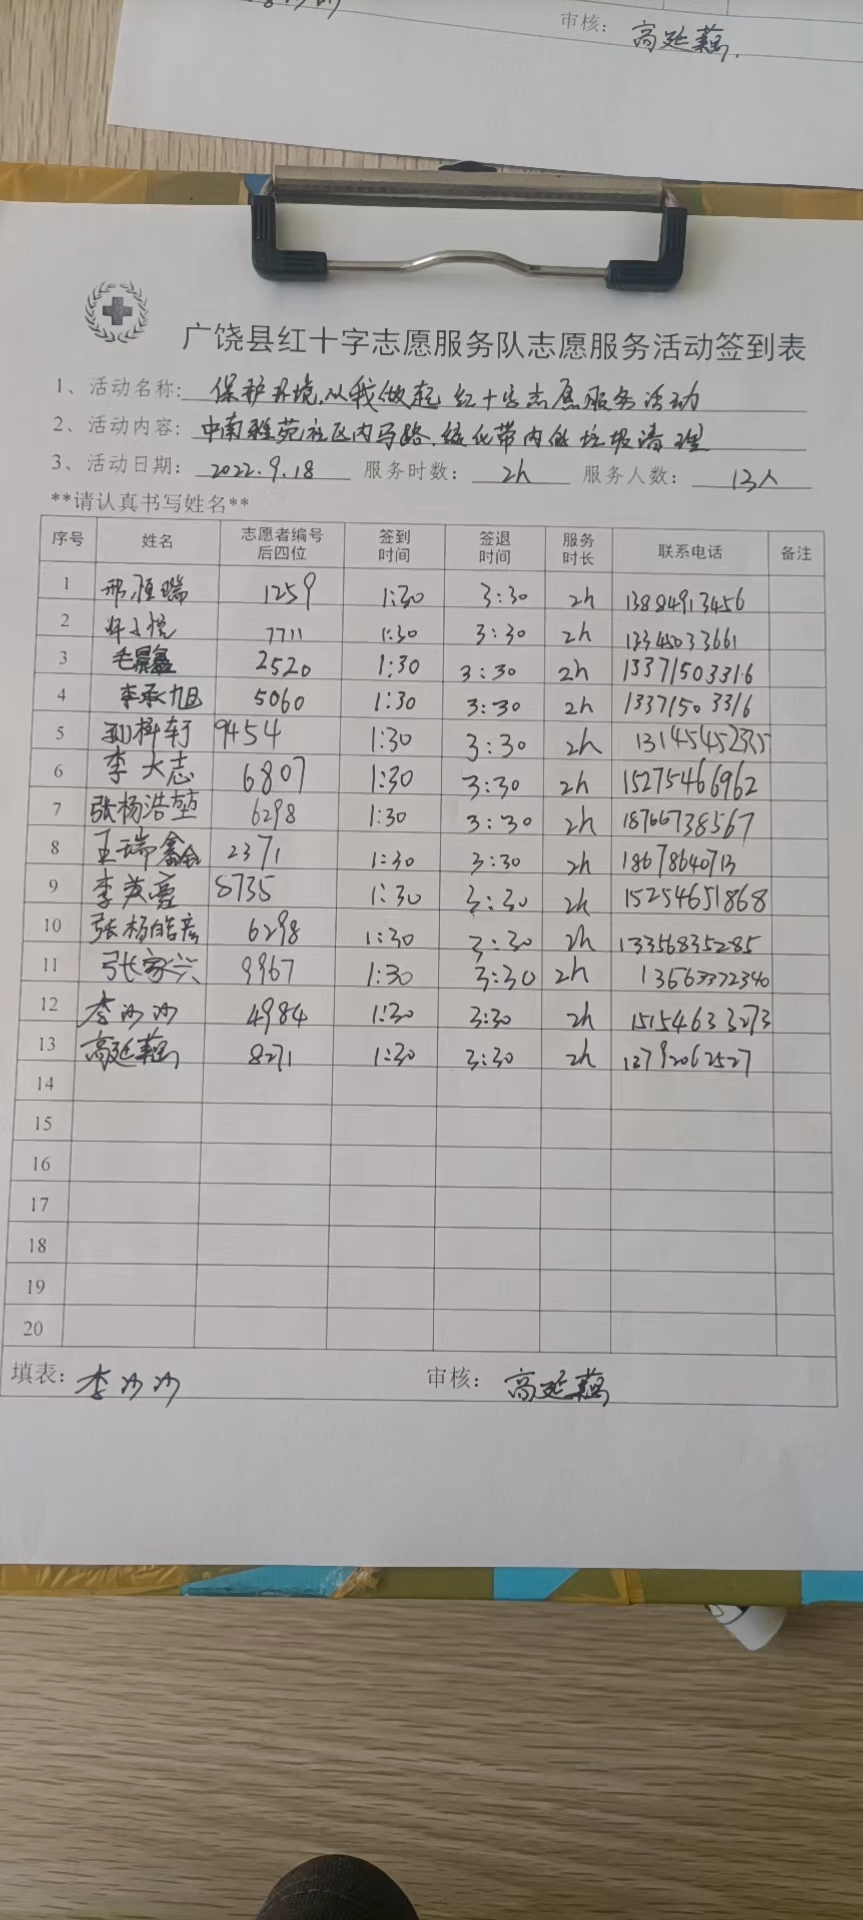 审核: 高延藕
广饶县红十字志愿服务队志愿服务活动签到表
1、活动名称: 保护环境,从我做起 红十字志愿服务活动
2、活动内容: 中南雅苑社区内马路、绿化带内的垃圾清理
3、活动日期: 2022.9.18 服务时数: 2h 服务人数: 13人
**请认真书写姓名**
序号 姓名 志愿者编号后四位 签到时间 签退时间 服务时长 联系电话 备注
1 邢恒瑞 1259 1:30 3:30 2h 13884913456
2 7711 1:30 3:30 2h 13345033661
3 毛晨鑫 2520 1:30 3:30 2h 13371503316
4 李承旭 5060 1:30 3:30 2h 13371503316
5 9454 1:30 3:30 2h
6 李大志 6807 1:30 3:30 2h 15275466962
7 张杨浩堃 6298 1:30 3:30 2h 18766738567
8 王瑞鑫 2371 1:30 3:30 2h 18678640713
9 李英亮 8735 1:30 3:30 2h 15254651868
10 张杨皓彦 6298 1:30 3:30 2h 13356835285
11 张家兴 9967 1:30 3:30 2h 13563372340
12 李沙沙 4984 1:30 3:30 2h 15154633273
13 高延藕 8271 1:30 3:30 2h 13792062527
14
15
16
17
18
19
20
填表: 李沙沙 审核: 高延藕